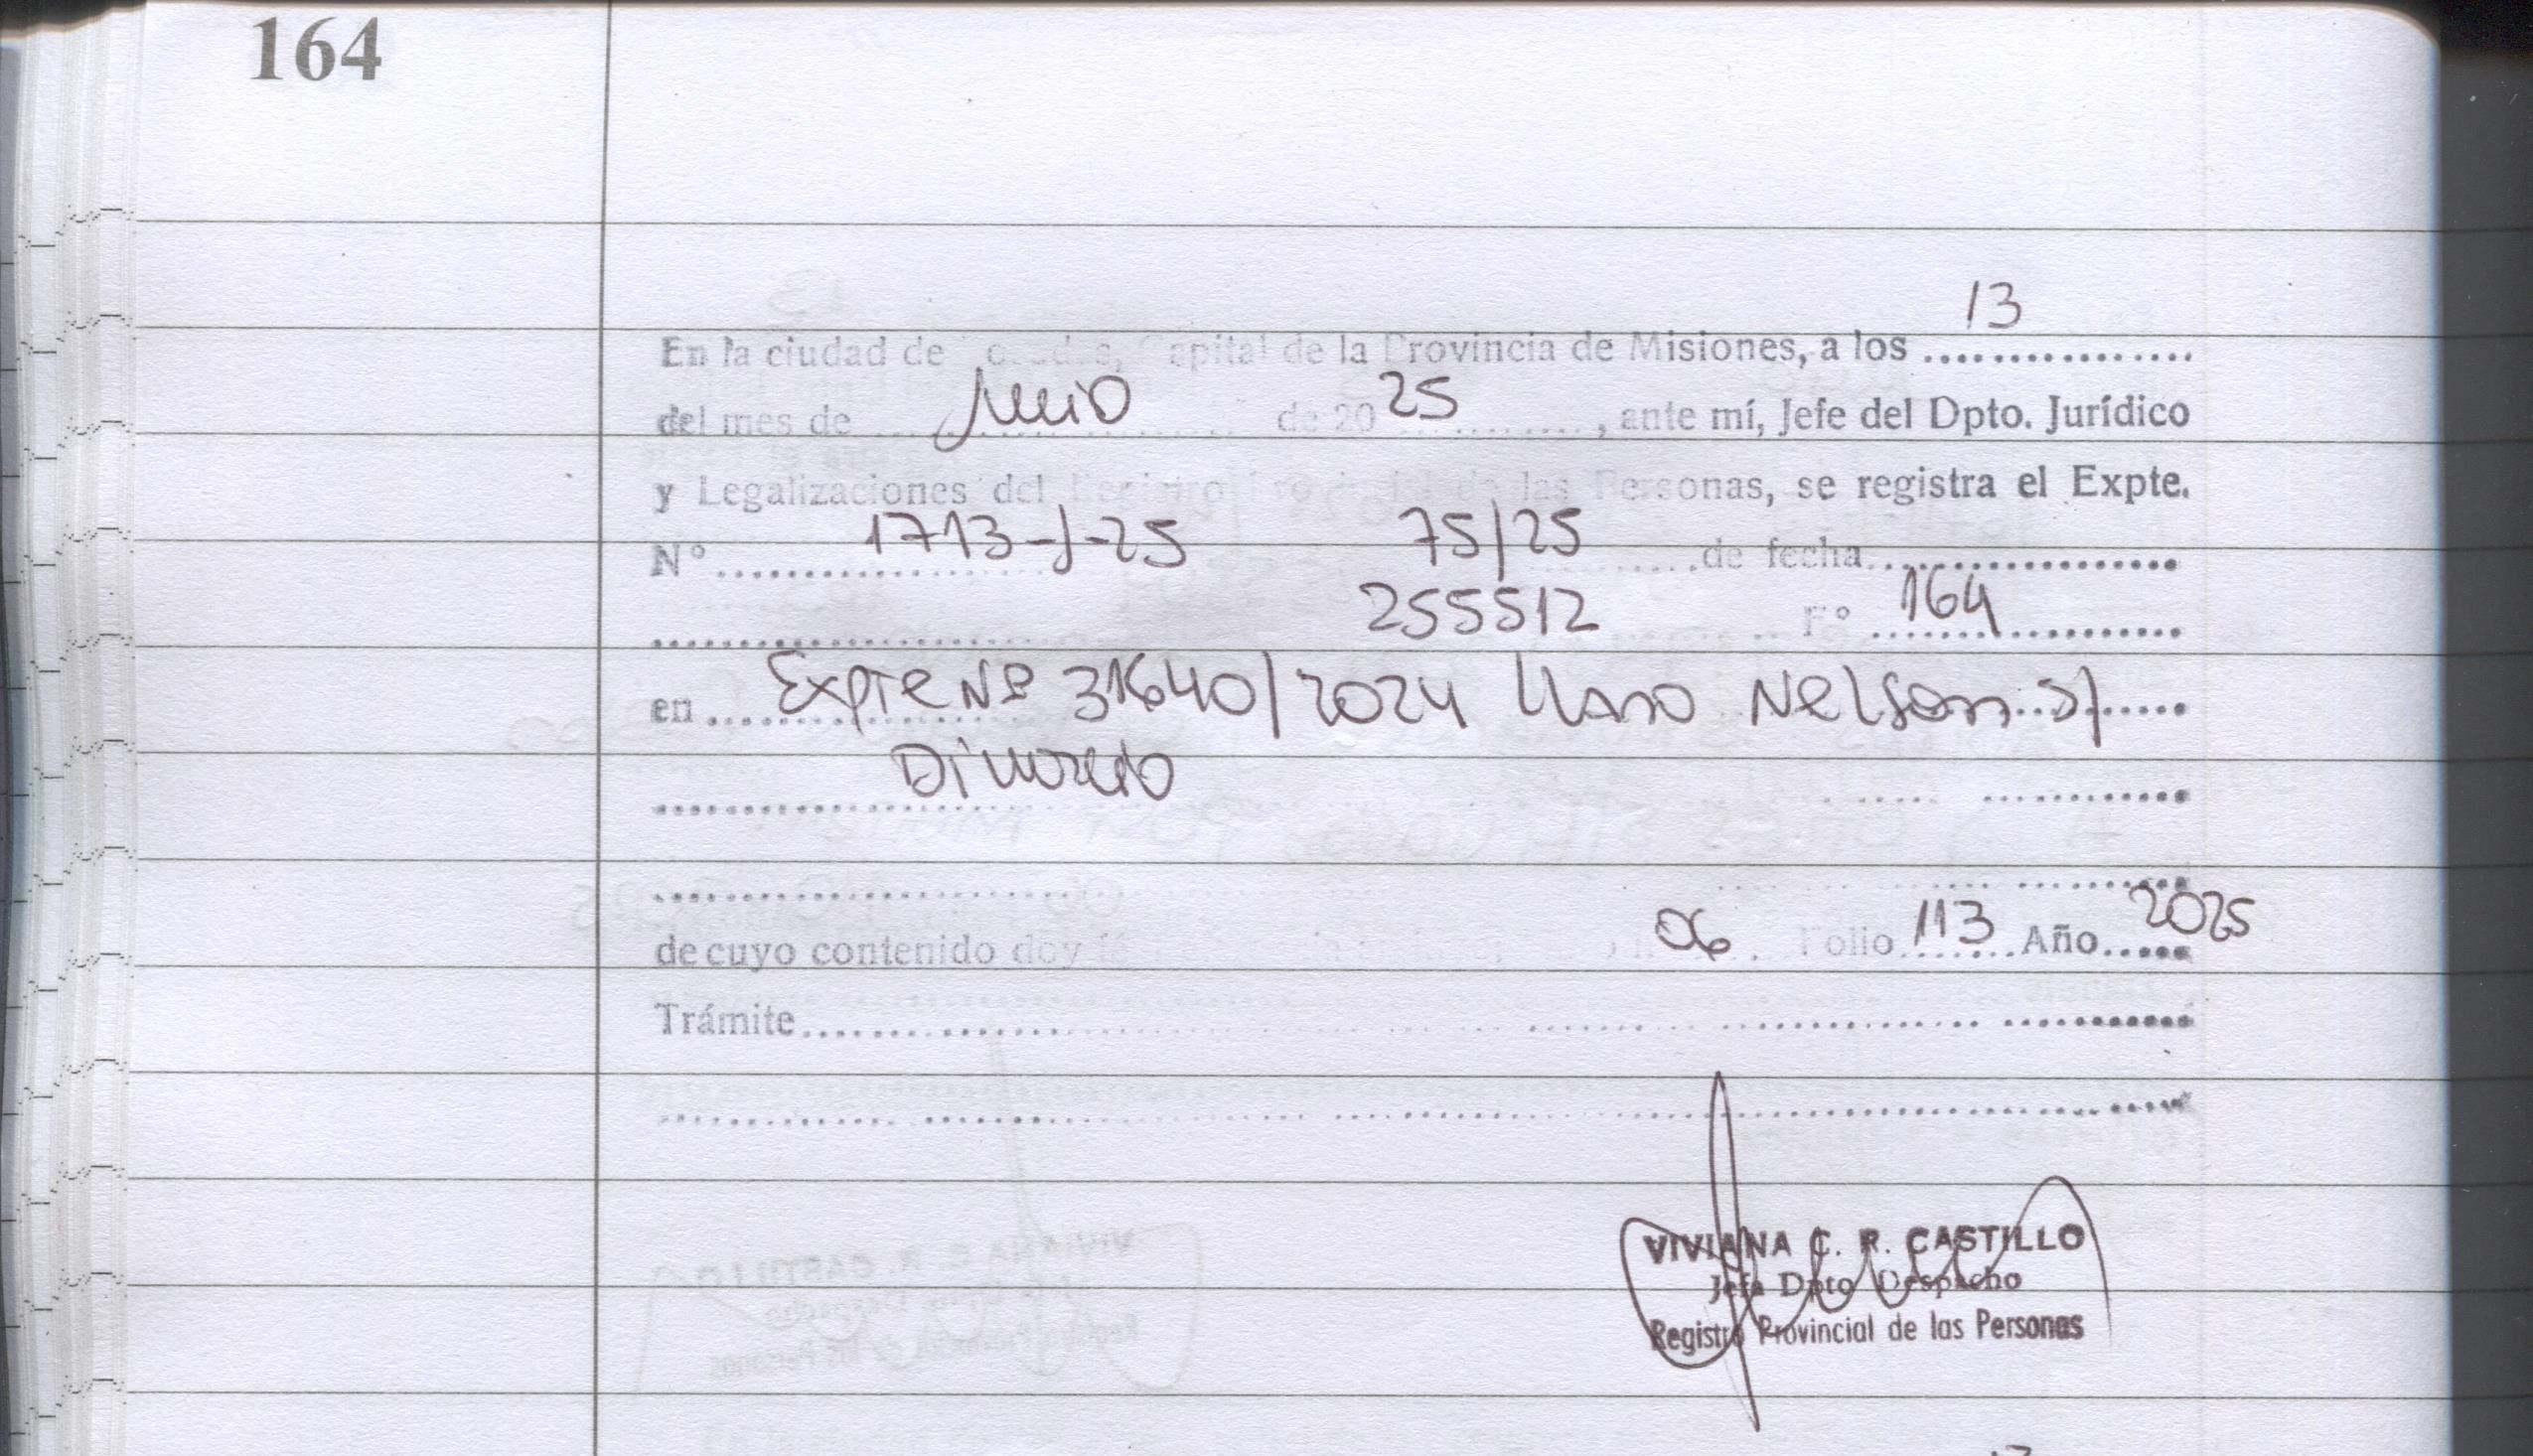 164
13
En la ciudad de Posadas, Capital de la Provincia de Misiones, a los ................
del mes de .... Junio .... de 20 25 ............, ante mí, Jefe del Dpto. Jurídico
y Legalizaciones del Registro Provincial de las Personas, se registra el Expte.
N° .......... 1713-J-25 75/25 ...... de fecha..................
.......... 255512 F° 164 ..................
en .......... Expte Nº /2024 Nelson s/ .....
Divorcio
de cuyo contenido doy fé 06 . Folio 113 Año 2025
Trámite..................
VIVIANA C. R. CASTILLO
Jefa Dpto Despacho
Registro Provincial de las Personas